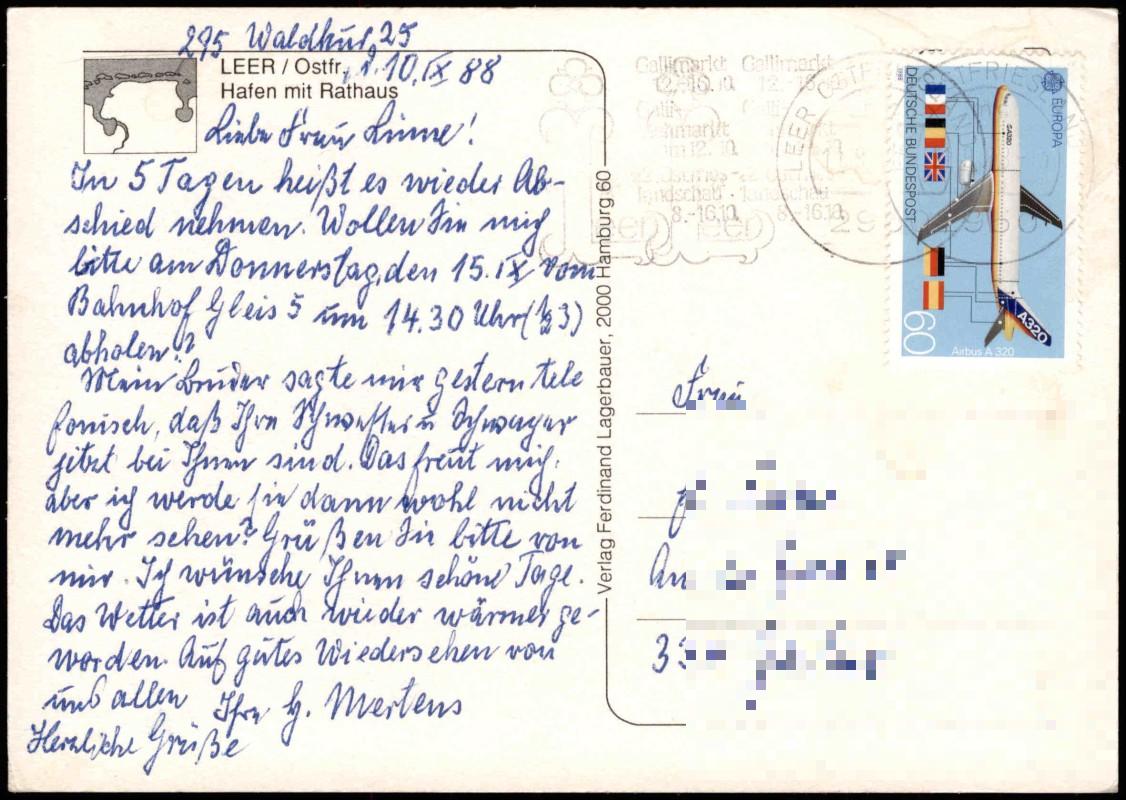 295 Waldkur, 25
LEER / Ostfr., d. 10. IX 88
Hafen mit Rathaus
Liebe Frau Linne!
In 5 Tagen heißt es wieder Ab-
schied nehmen. Wollen Sie mich
bitte am Donnerstag, den 15. IX vom
Bahnhof Gleis 5 um 14.30 Uhr (½3)
abholen?
Mein Bruder sagte mir gestern tele
fonisch, daß Ihre Schwester u Schwager
jetzt bei Ihnen sind. Das freut mich.
aber ich werde sie dann wohl nicht
mehr sehen? Grüßen Sie bitte von
mir. Ich wünsche Ihnen schöne Tage.
Das Wetter ist auch wieder wärmer ge-
worden. Auf gutes Wiedersehen von
uns allen Ihre H. Mertens
Herzliche Grüße
Verlag Ferdinand Lagerbauer, 2000 Hamburg 60
Gallimarkt Gallimarkt
12.-16.10. 12.-16.10.
8.-16.10. 8.-16.10.
Leer Leer
DEUTSCHE BUNDESPOST
1988
EUROPA
SA320
A320
60
Airbus A 320
Frau